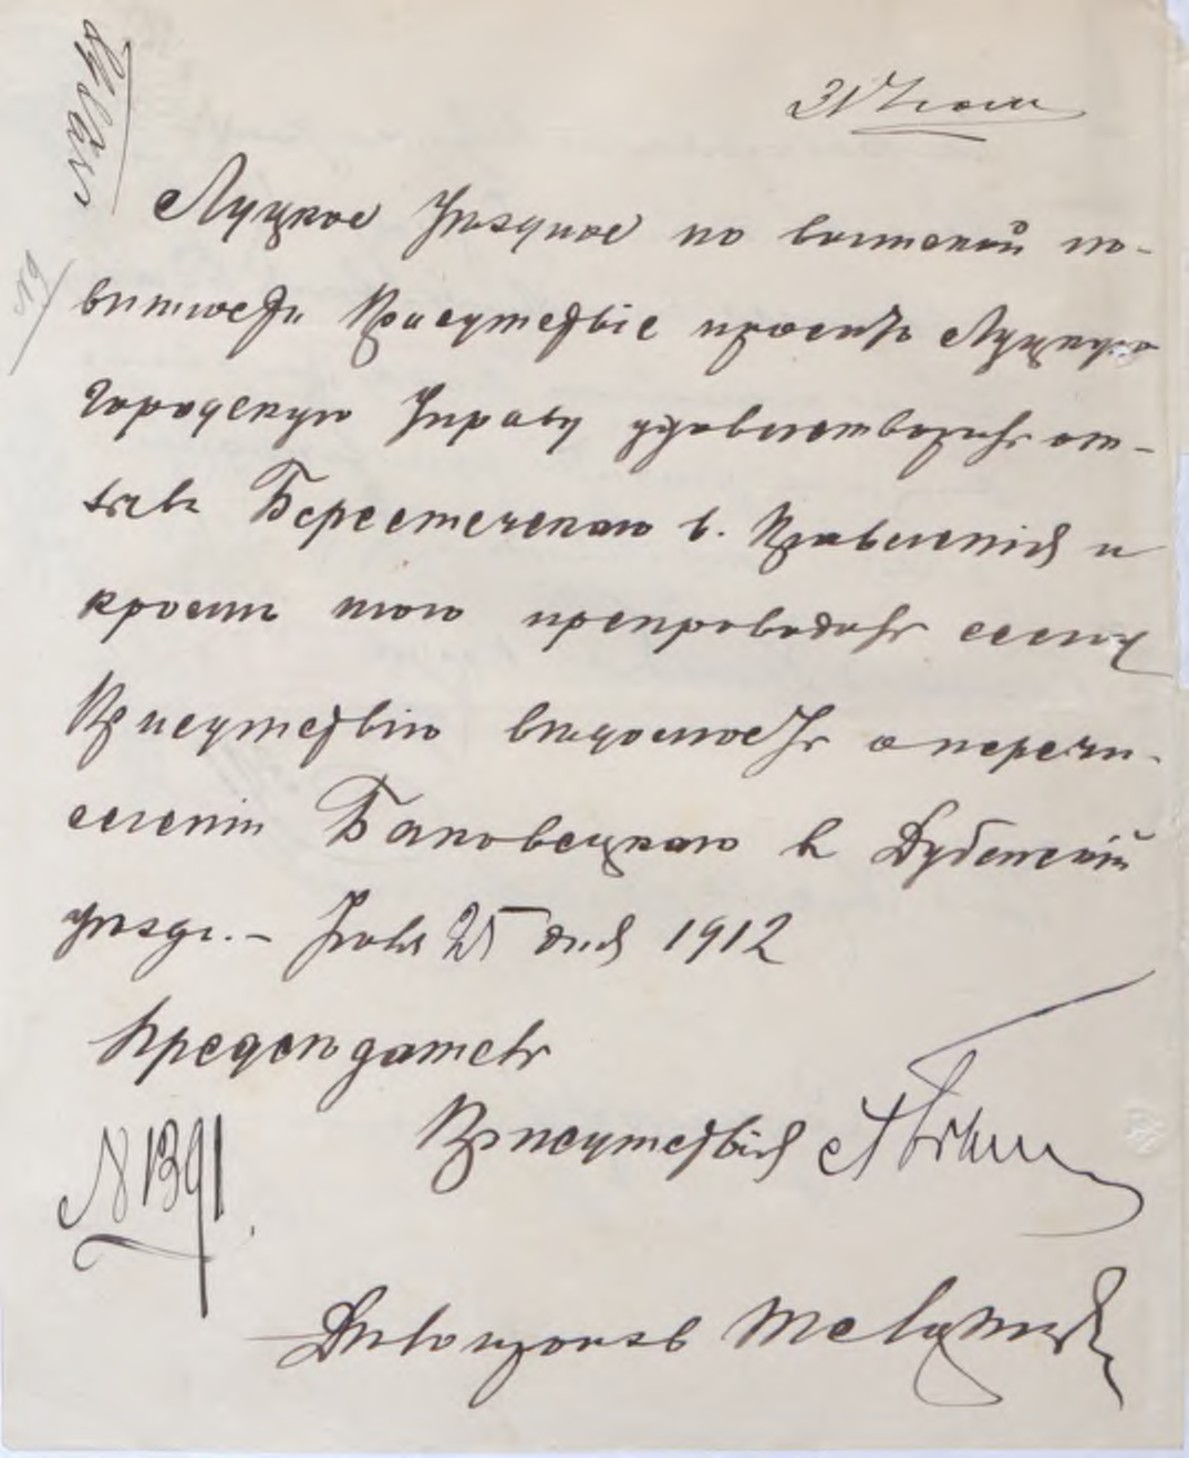 31 Июля
Луцкое Уѣздное по воинской по-
винности Присутствіе проситъ Луцкую
городскую Управу удовлетворить от-
зывъ Берестечскаго в. Правленія и
кромѣ того препроводить сему
Присутствію вѣдомость о перечи-
сленіи Баковецкаго въ Дубенскій
уѣздъ. – Іюля 25 дня 1912
Предсѣдатель
Присутствія
N 1391
Дѣлопроизв